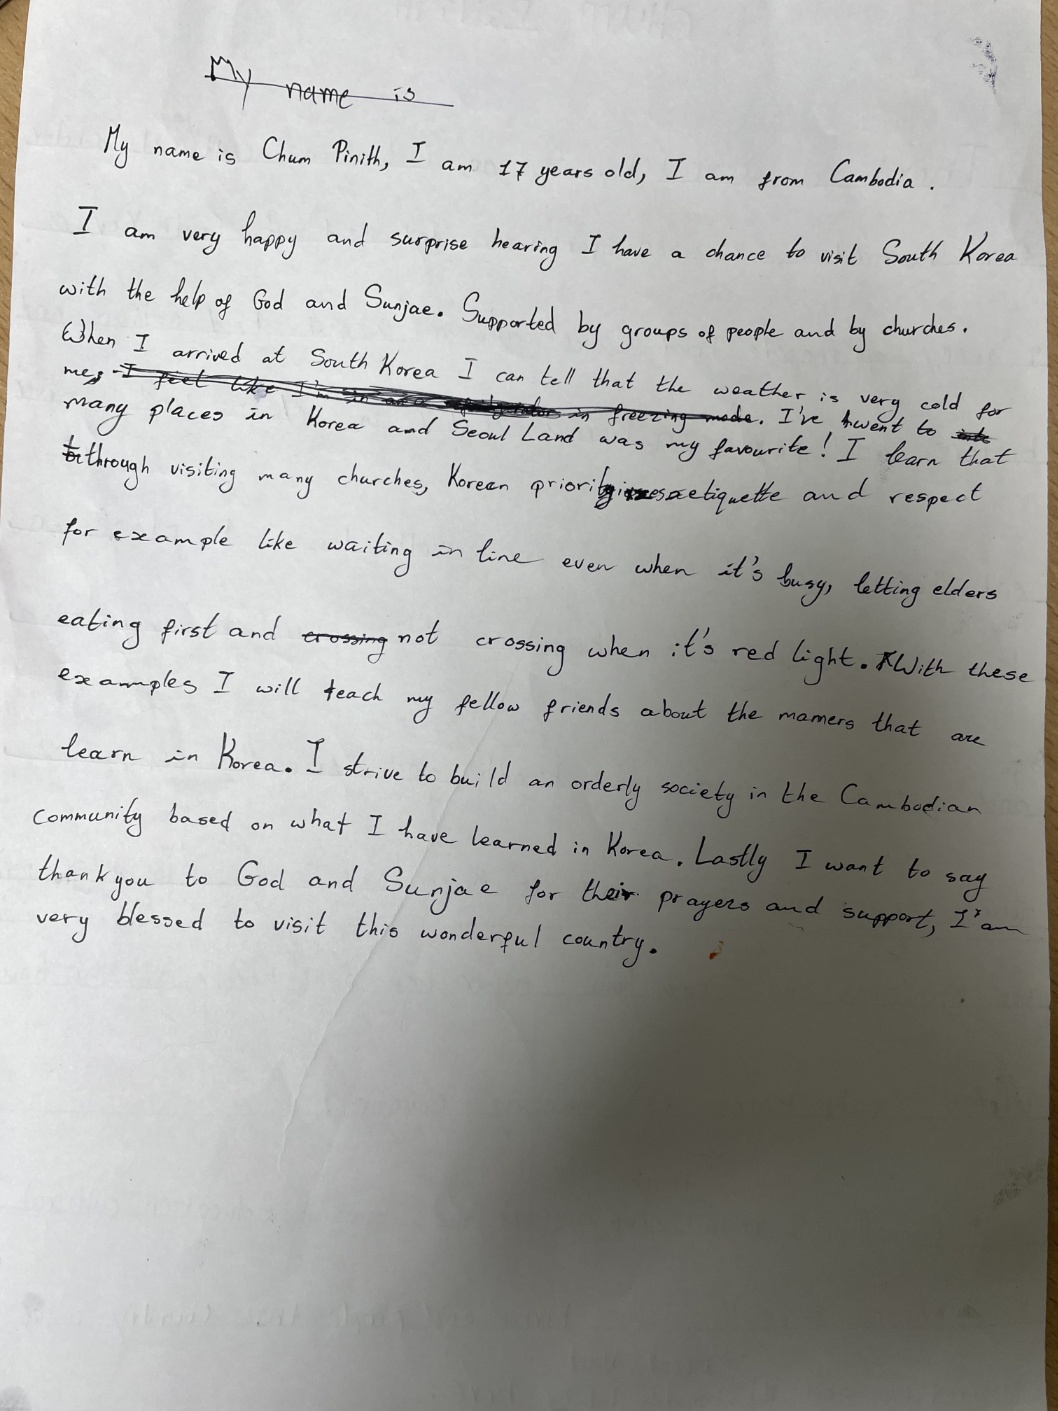 My name is
My name is Chum Pinith, I am 17 years old, I am from Cambodia.
I am very happy and surprise hearing I have a chance to visit South Korea
with the help of God and Sunjae. Supported by groups of people and by churches.
When I arrived at South Korea I can tell that the weather is very cold for
me, I feel like I'm in freezing mode. I've went to
many places in Korea and Seoul Land was my favourite! I learn that
through visiting many churches, Korean etiquette and respect
for example like waiting in line even when it's busy, letting elders
eating first and crossing not crossing when it's red light. With these
examples I will teach my fellow friends about the manners that are
learn in Korea. I strive to build an orderly society in the Cambodian
community based on what I have learned in Korea. Lastly I want to say
thank you to God and Sunjae for their prayers and support, I'am
very blessed to visit this wonderful country.